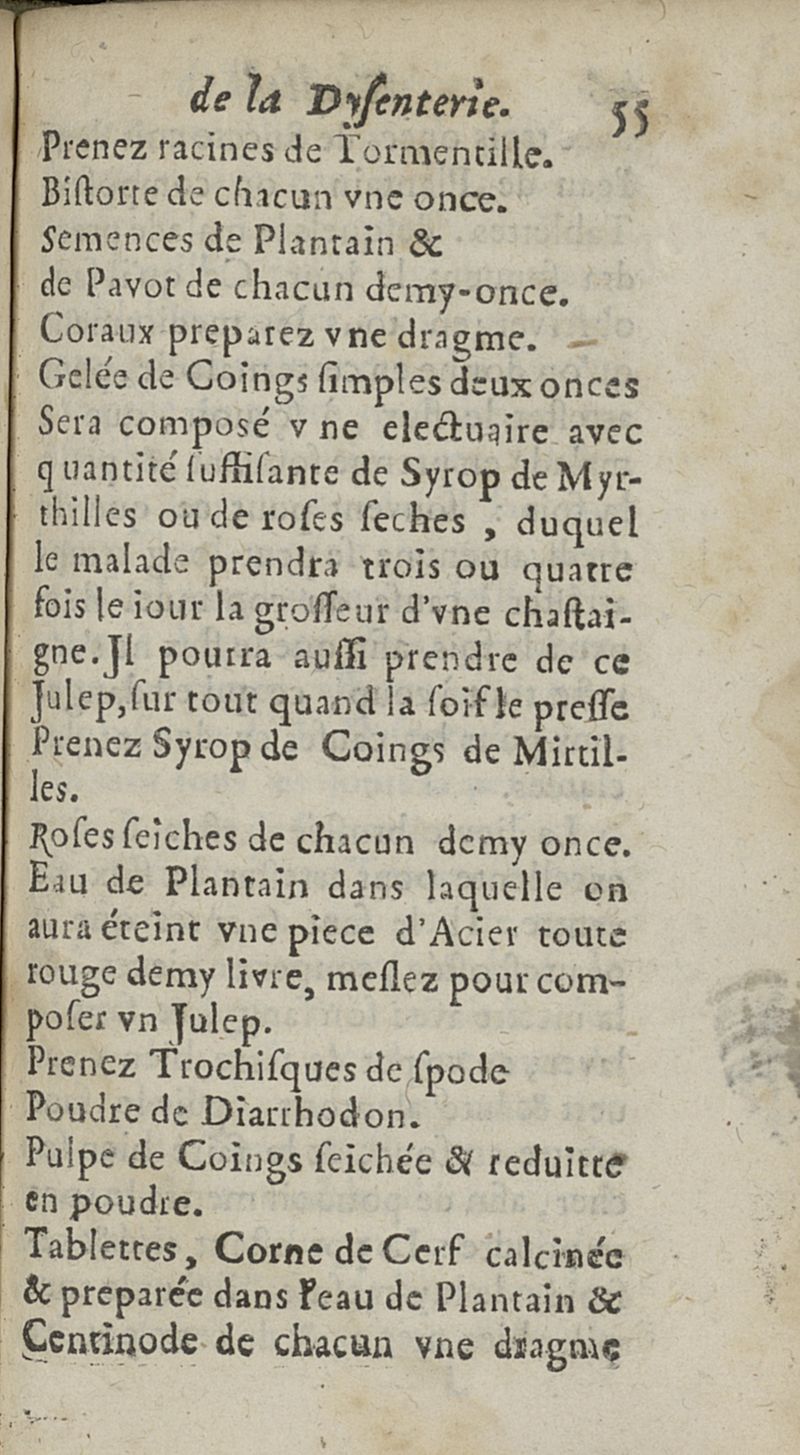 de la Dyſenterie. 55
Prenez racines de Tormentille.
Biſtorte de chacun vne once.
Semences de Plantain &
de Pavot de chacun demy-once.
Coraux preparez vne dragme.
Gelée de Coings ſimples deux onces
Sera composé v ne electuaire avec
q uantité ſuffiſante de Syrop de Myr-
thilles ou de roſes ſeches , duquel
le malade prendra trois ou quatre
fois le iour la groſſeur d'vne chaſtai-
gne. Jl pourra auſſi prendre de ce
Julep, ſur tout quand la ſoif le preſſe
Prenez Syrop de Coings de Mirtil-
les.
Roſes ſeiches de chacun demy once.
Eau de Plantain dans laquelle on
aura éteint vne piece d'Acier toute
rouge demy livre, meſlez pour com-
poſer vn Julep.
Prenez Trochiſques de ſpode
Poudre de Diarrhodon.
Pulpe de Coings ſeichée & reduitte
en poudre.
Tablettes, Corne de Cerf calcinée
& preparée dans l'eau de Plantain &
Centinode de chacun vne dragme